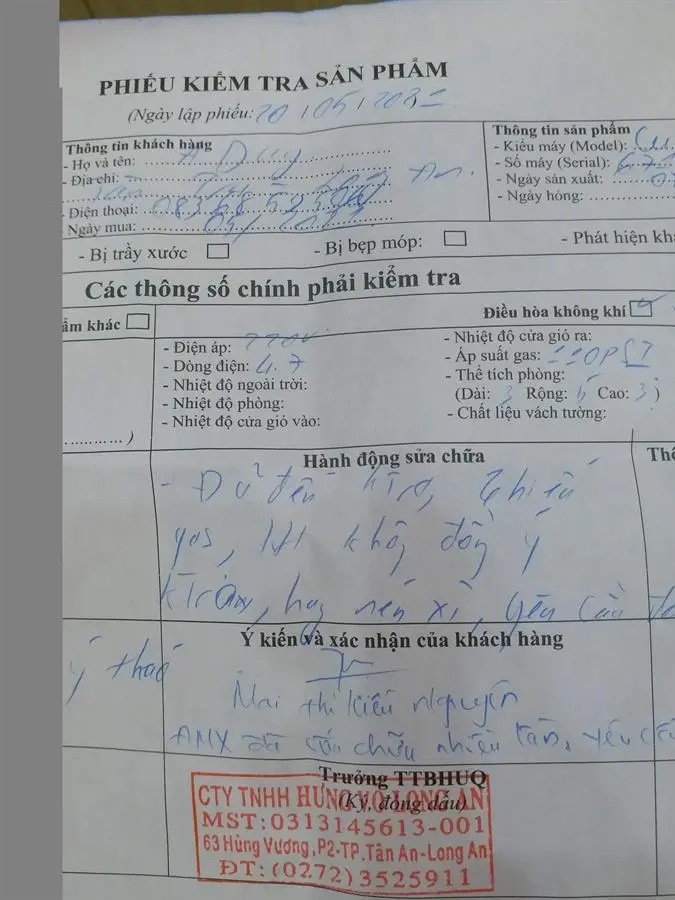 PHIẾU KIỂM TRA SẢN PHẨM
(Ngày lập phiếu: 20/05/202
Thông tin khách hàng
- Họ và tên: A Duy
- Địa chỉ: An.
- Điện thoại:
Ngày mua: 05/
Thông tin sản phẩm
- Kiểu máy (Model):
- Số máy (Serial):
- Ngày sản xuất:
- Ngày hỏng:
- Bị trầy xước
- Bị bẹp móp:
- Phát hiện kh
Các thông số chính phải kiểm tra
ẩm khác
Điều hòa không khí
- Điện áp: 220V
- Dòng điện: 4.7
- Nhiệt độ ngoài trời:
- Nhiệt độ phòng:
- Nhiệt độ cửa gió vào:
- Nhiệt độ cửa gió ra:
- Áp suất gas: 110PSI
- Thể tích phòng:
(Dài: 3 Rộng: Cao: 3)
- Chất liệu vách tường:
...........)
Hành động sửa chữa
Thô
- Đã đến thiếu
gas, không đồng ý
hay nén xì, yêu cầu
Ý kiến và xác nhận của khách hàng
ý thao
Mai thị kiều nguyên
đã sửa chữa nhiều lần, yêu cầ
Trưởng TTBHUQ
(Ký, đóng dấu)
CTY TNHH HƯNG VÕ LONG AN
MST:0313145613-001
63 Hùng Vương,P2-TP.Tân An-Long An
ĐT:(0272)3525911